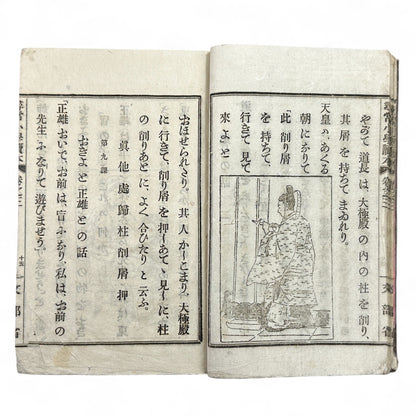 やがて道長は、大極殿の内の柱を削り、
其屑を持ちてまゐれり。
天皇は、あくる
朝にかなり、
「此削り屑
を持ちて、
行きて見て
來よ」と、
おほせられたり。其人かしこまり、大極殿
に行きて、その削り屑を押して見しに、柱
の削りあとに、よく合ひたりと云ふ。
眞 他 處 歸 柱 削 屑 押
第九課
おきよと正雄との話
「正雄おいで。お前は、盲になり、私は、お前の
先生になりて遊びませう。
尋常小學讀本
文部省
十五